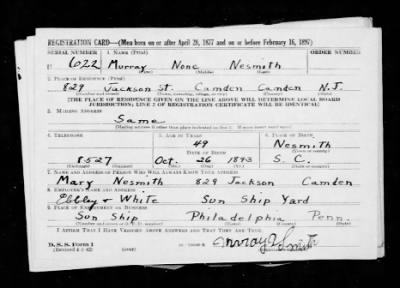 REGISTRATION CARD—(Men born on or after April 28, 1877 and on or before February 16, 1897)
SERIAL NUMBER 1. NAME (Print) ORDER NUMBER
U 1022 Murray None Nesmith
(First) (Middle) (Last)
2. PLACE OF RESIDENCE (Print)
829 Jackson St. Camden Camden N.J.
(Number and street) (Town, township, village, or city) (County) (State)
[THE PLACE OF RESIDENCE GIVEN ON THE LINE ABOVE WILL DETERMINE LOCAL BOARD
JURISDICTION; LINE 2 OF REGISTRATION CERTIFICATE WILL BE IDENTICAL]
3. MAILING ADDRESS
Same
[Mailing address if other than place indicated on line 2. If same insert word same]
4. TELEPHONE 5. AGE IN YEARS 6. PLACE OF BIRTH
49 Nesmith
DATE OF BIRTH (Town or county)
8527 Oct. 26 1893 S. C.
(Exchange) (Number) (Mo.) (Day) (Yr.) (State or country)
7. NAME AND ADDRESS OF PERSON WHO WILL ALWAYS KNOW YOUR ADDRESS
Mary Nesmith 829 Jackson Camden
8. EMPLOYER'S NAME AND ADDRESS
White Sun Ship Yard
9. PLACE OF EMPLOYMENT OR BUSINESS
Sun Ship Philadelphia Penn.
(Number and street or R. F. D. number) (Town) (County) (State)
I AFFIRM THAT I HAVE VERIFIED ABOVE ANSWERS AND THAT THEY ARE TRUE.
D. S. S. Form 1